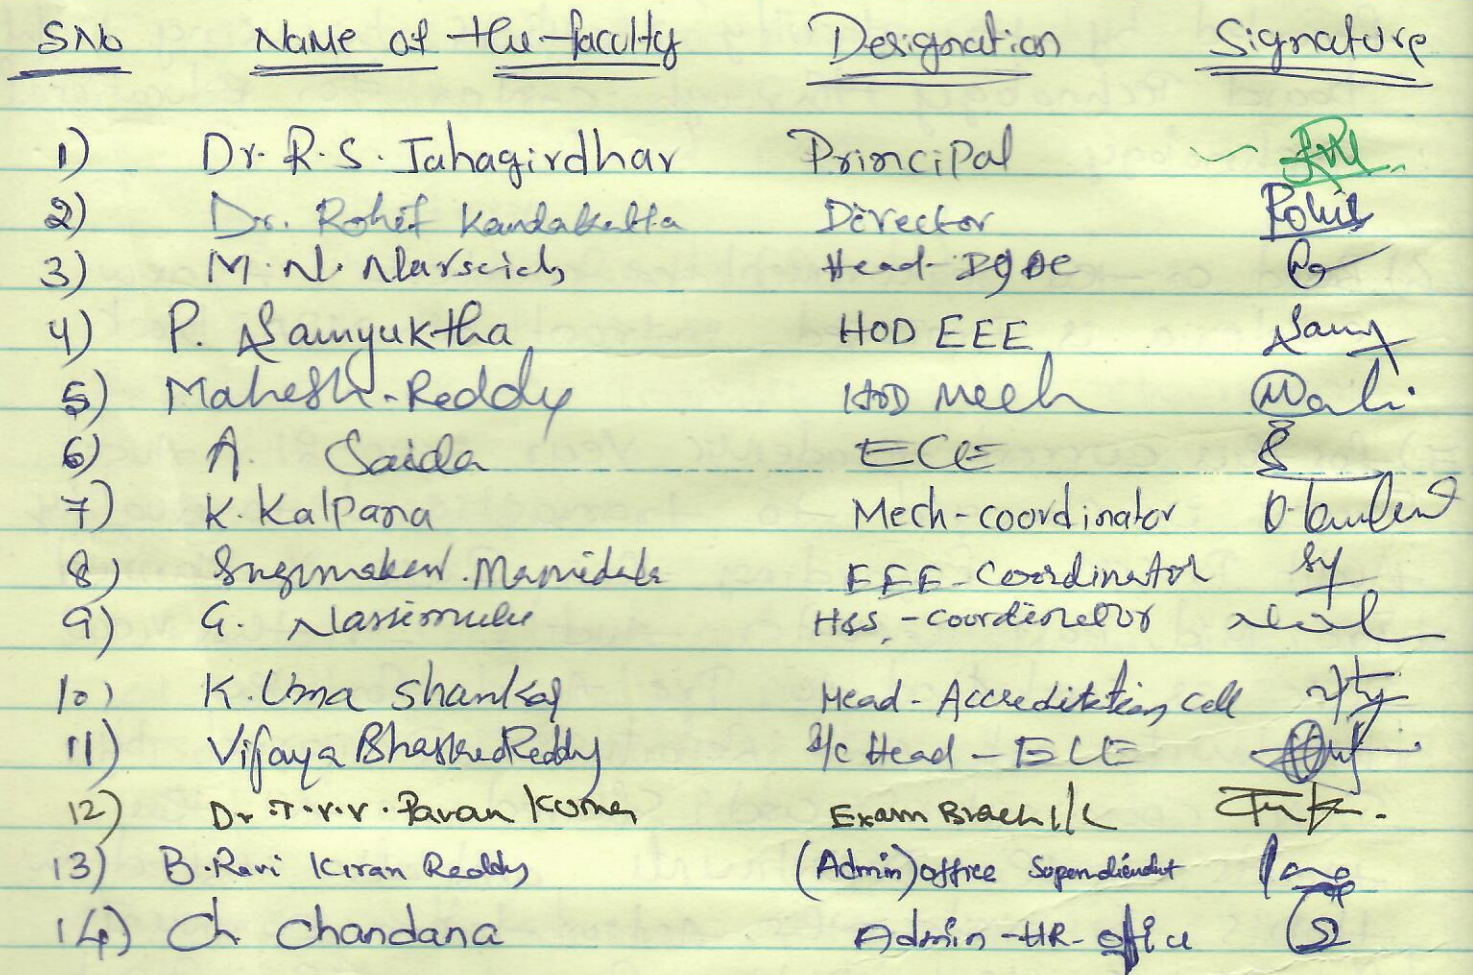 SNo Name of the faculty Designation Signature
1) Dr. R. S. Jahagirdhar Principal
2) Dr. Rohit Kandakatla Director Rohit
3) M. N. Narsaiah Head-
4) P. Samyuktha HOD EEE Samy
5) Mahesh Reddy HOD Mech
6) A. Saida ECE
7) K. Kalpana Mech-coordinator
8) Mamidala EEE-Coordinator
9) G. Narsimulu H&S, -coordinator
10) K. Uma Shankar Head-Accreditation Cell
11) Vijaya Bhasker Reddy I/c Head - ECE
12) Dr. T.V.V. Pavan Kumar Exam Brach I/C
13) B. Ravi Kiran Reddy (Admin) office Supendiendut
14) Ch Chandana Admin-HR-office